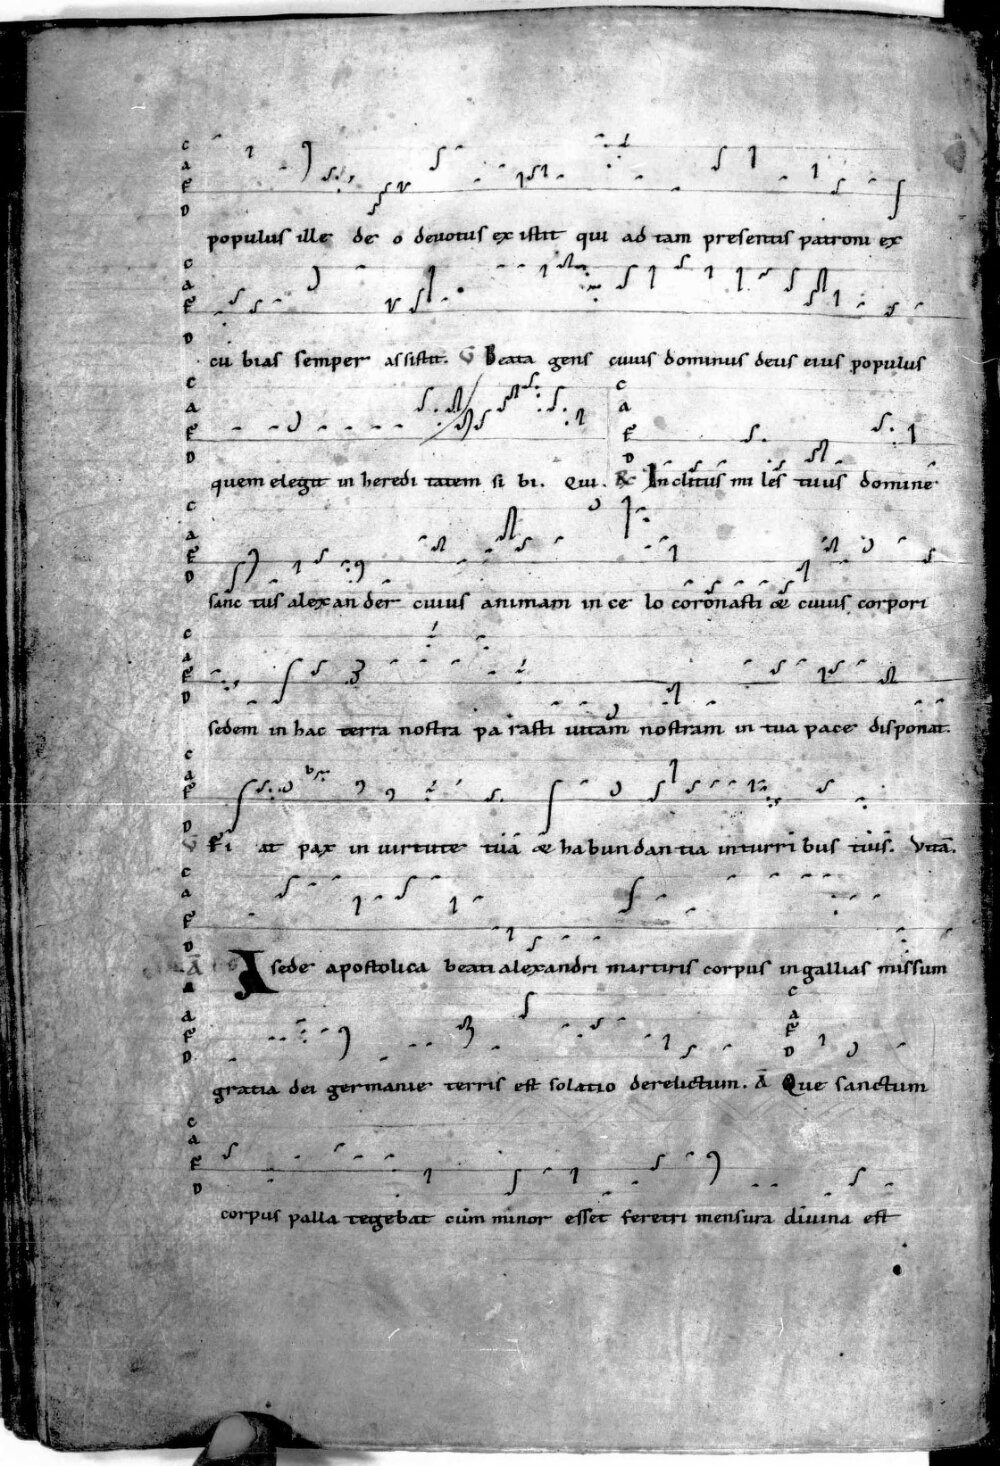 populus ille de o deuotus ex istit qui ad tam presentis patroni ex
cu bias semper assistit. V Beata gens cuius dominus deus eius populus
quem elegit in heredi tatem si bi. Qui. R Inclitus mi les tuus domine
sanc tus alexan der cuius animam in ce lo coronasti & cuius corpori
sedem in hac terra nostra pa rasti uitam nostram in tua pace disponat.
V Fi at pax in uirtute tuā & habundan tia inturri bus tuis. Vitā.
Ā A sede apostolica beati alexandri martiris corpus ingallias missum
gratia dei germanie terris est solatio derelictum. Ā Que sanctum
corpus palla tegebat cum minor esset feretri mensura diuina est